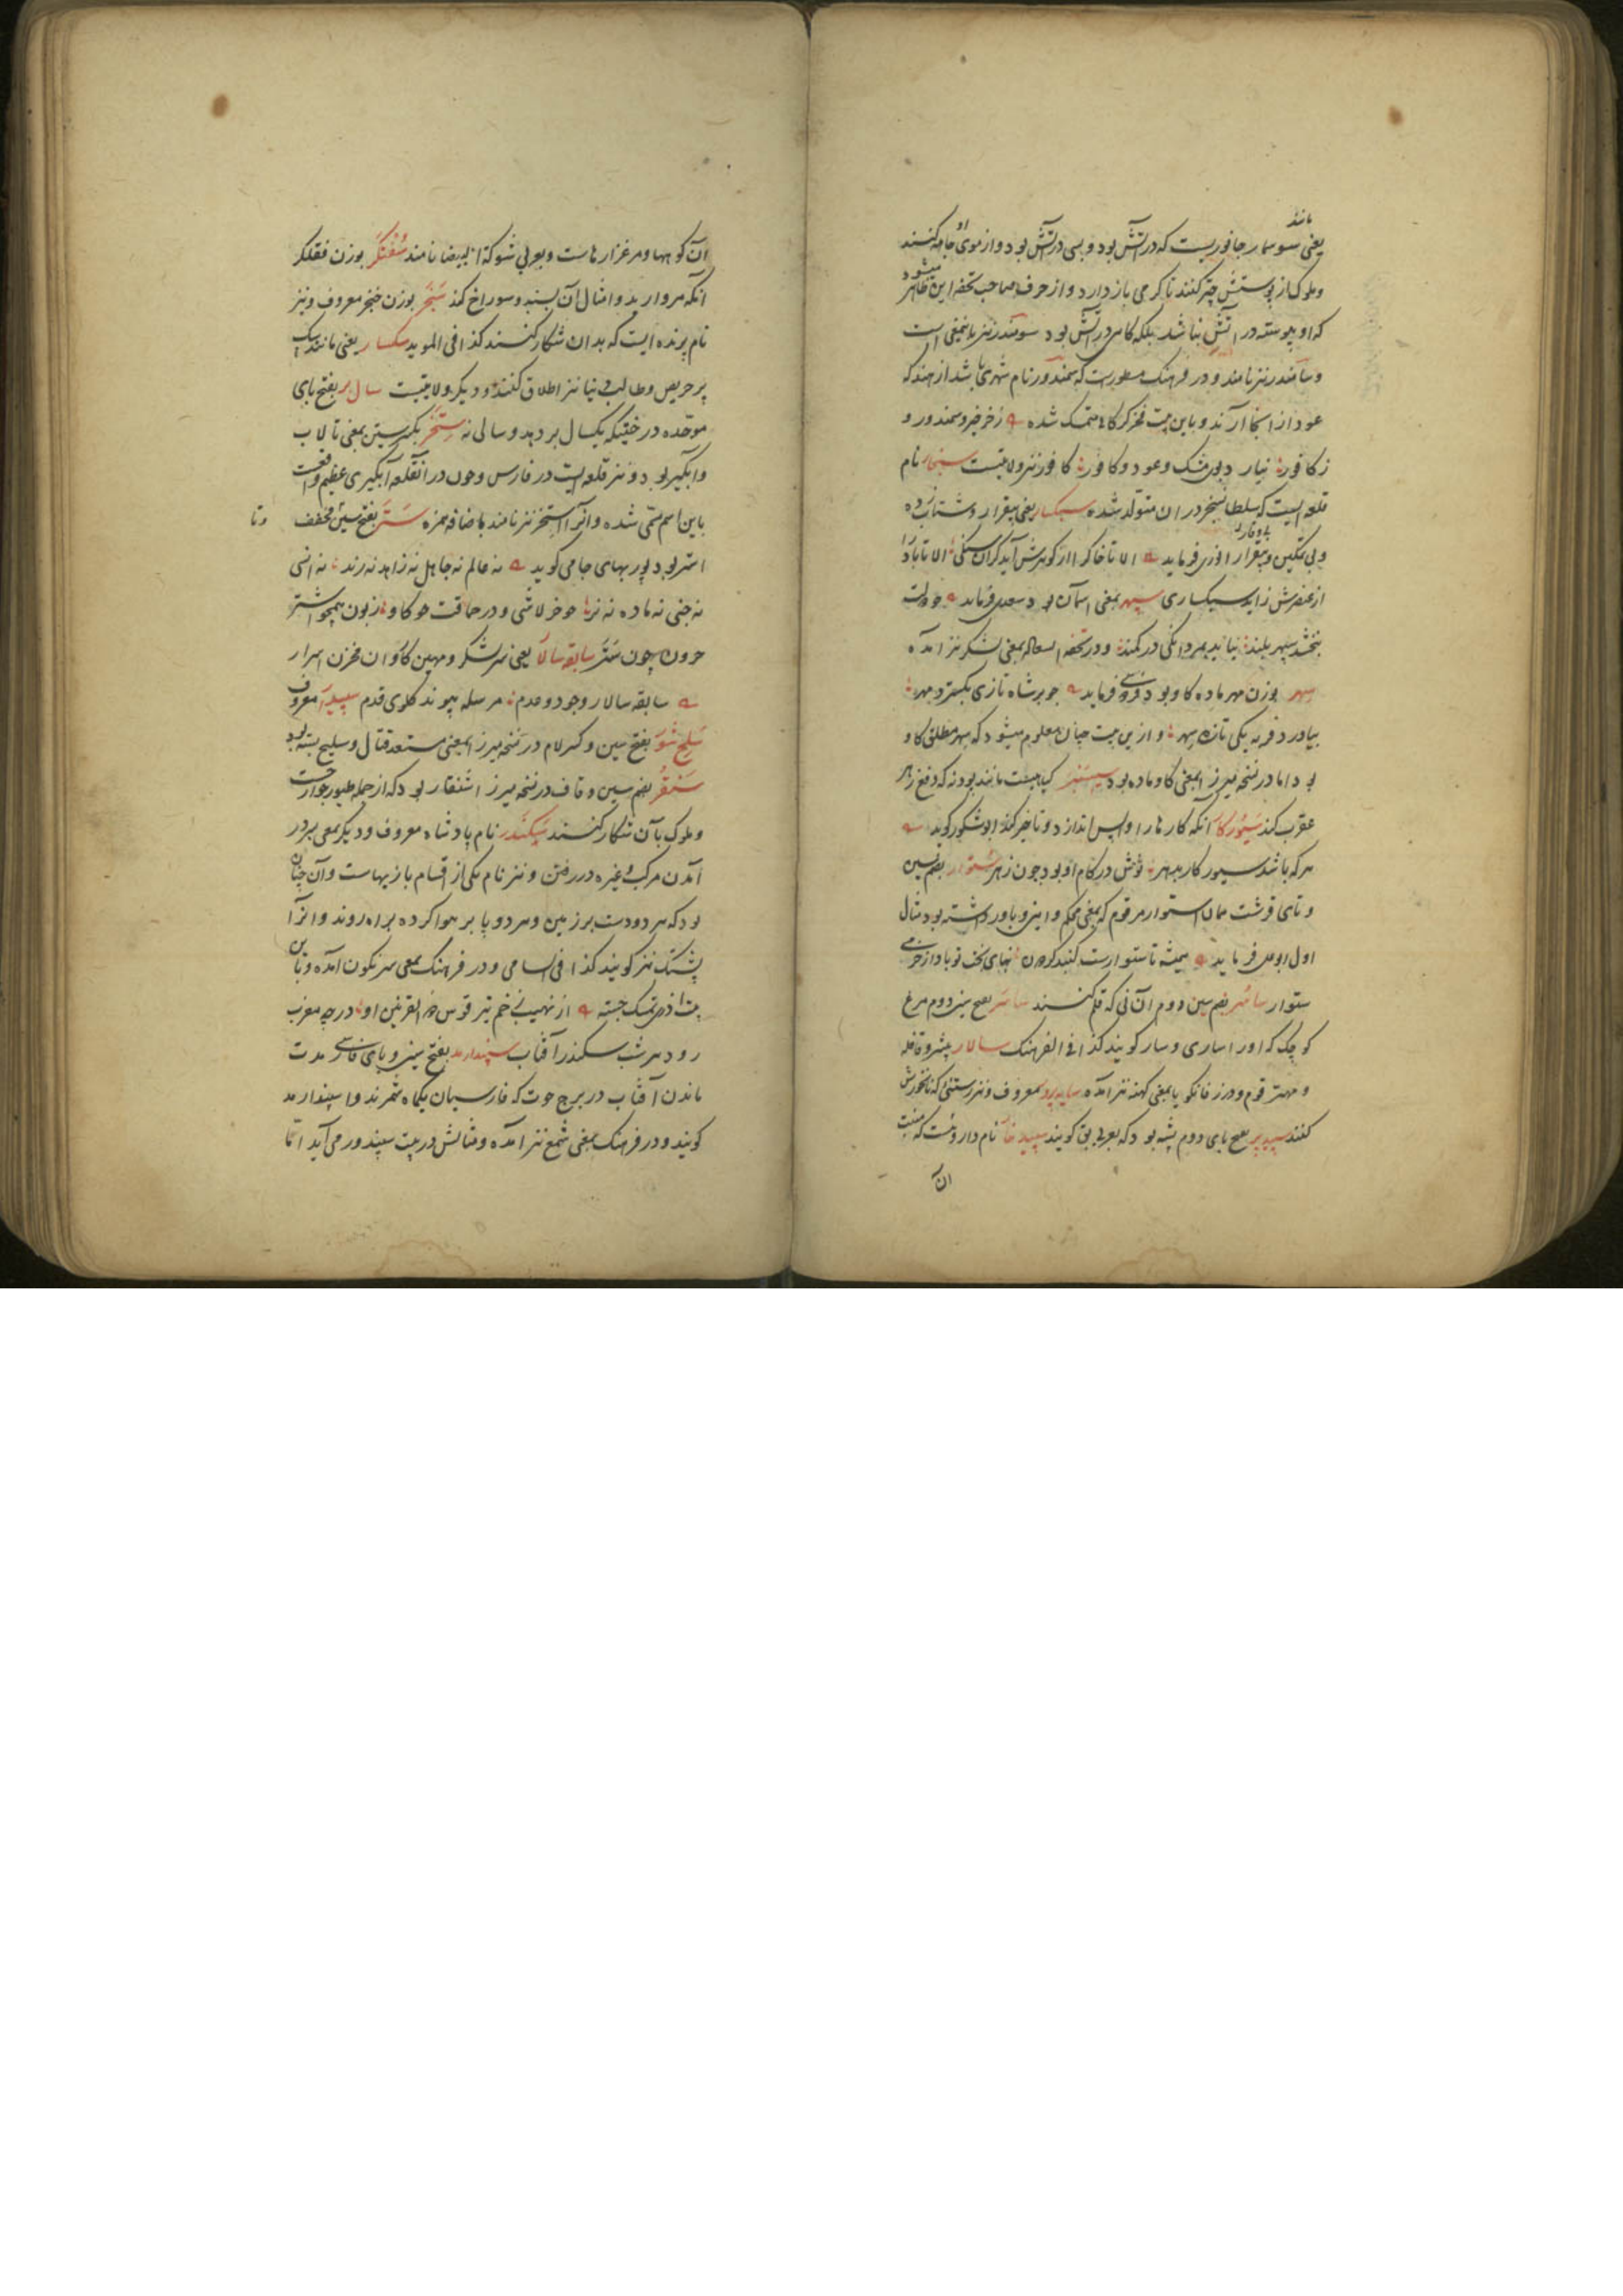 مانند
یعنی سوسمار جانوریست که در آتش بود و بسی در آتش بود و از موی او جامه کنند
و ملوک از پوستش چتر کنند تا گرمی باز دارد و از حرف صاحب تحفه این ظاهر میشود
که او پیوسته در آتش نباشد بلکه گاهی در آتش بود سومندر نیز باینمعنی است
و سامندر نیز نامند و در فرهنگ مسطورست که سمندور نام شهری باشد از هند که
عود از آنجا آرند و باین بیت فخر گرگانی متمسک شده ز خرخیز و سمندور و
ز کافور نیار د بوی مشک و عود و کافور کافور نیز ولایتیست سنجار نام
قلعه ایست که سلطان سنجر در ان متولد شده سبکسار یعنی بیقرار و شتاب زده
و بی تمکین و بیوقار انوری فرماید الا تا خاک را از گوهرش آید گران سنگی الا تا باد را
از عنصرش زاید سبکساری سپهر بمعنی آسمان بود سعدی فرماید چو دولت
نبخشد سپهر بلند نیاید بمردانگی در کمند و در تحفه السعاده بمعنی لشکر نیز آمده
سهر بوزن مهر ماده گاو بود فردوسی فرماید چو بر شاه تازی بگسترد مهر
بیاورد فربه یکی تازه سهر و ازین بیت چنان معلوم میشود که سهر مطلق گاو
بود اما در نسخه میرزا بمعنی گاو ماده بود سیسنبر گیاهیست مانند پودنه که دفع زهر
عقرب کند سیورکار آنکه کارها را واپس اندازد و تاخیر کند ابو شکور گوید
هرکه باشد سیورکار بهر نوشش در کام او بود چون زهر ستوار بضم سین
و تای قرشت همان استوار مرقوم که بمعنی محکم و امین و باور داشته بود مثال
اول ابو فرماید همیشه تا ستوارست گنبد گردون بنهای بخت تو بادا ز خرمی
ستوار سامر بضم سین دوم آن نی که قلم کنند ساسر بفتح سین دوم مرغ
کوچک که او را ساری و سار گویند کذا فی الفرهنگ سالار پیشرو قافله
و مهتر قوم و در زفانگویا بمعنی کهنه نیز آمده سایه پرور معروف و نیز رستنی که نانخورش
کنند سپیدپر بفتح بای دوم پشه بود که بعربی بق گویند سپید خار نام داروئست که منبت
آن
آن کوهها و مرغزارهاست و بعربی شوکة البیضا نامند سفتگر بوزن فقلگر
آنکه مروارید و امثال آن بسنبد و سوراخ کند سنجر بوزن خنجر معروف و نیز
نام پرنده ایست که بدان شکار کنند کذا فی الموید سگسار یعنی مانند سگ
پر حریص و طالب دنیا نیز اطلاق کنند و دیگر ولایتیست سال بر بفتح بای
موحده درختیکه یکسال بر دهد و سالی نه ستخر بکسر سین بمعنی تالاب
و آبگیر بود و نیز قلعه ایست در فارس و چون در آنقلعه آبگیری عظیم واقعست
باین اسم مسمی شده و آنرا استخر نیز نامند باضافه همزه ستر بفتح سین مخفف
و تا
استر بود پوربهای جامی گوید نه عالم نه جاهل نه زاهد نه رند نه انسی
نه جنی نه ماده نه نر چو خر لاشی و در حماقت چو گاو زبون همچو اشتر
حرون چون ستر سابقه سالار یعنی سر لشکر و مهین کاروان مخزن اسرار
سابقه سالار وجود و عدم مرسله پیوند گلوی قدم سپیدار معروف
سلح شور بفتح سین و کسر لام در نسخه میرزا بمعنی مستعد قتال و سلیح بسته بود
سنقر بضم سین و قاف در نسخه میرزا شنقار بود که از جمله طیور جوارحست
و ملوک بآن شکار کنند سکندر نام پادشاه معروف و دیگر بمعنی بسردر
آمدن مرکب و غیره در رفتن و نیز نام یکی از اقسام بازیهاست و آن چنان
بود که هر دو دست بر زمین و هر دو پا بر هوا کرده براه روند و آنرا
پشتک نیز گویند کذا فی السامی و در فرهنگ بمعنی سرنگون آمده و باین
بیت تمسک جسته از نهیب خم تیر قوس ذو القرنین او در چه مغرب
رود هر شب سکندر آفتاب سپندارمد بفتح سین و بای فارسی مدت
ماندن آفتاب در برج حوت که فارسیان یکماه شمرند و اسپندارمد
گویند و در فرهنگ بمعنی شمع نیز آمده و مثالش در بیت سپندور می آید اما